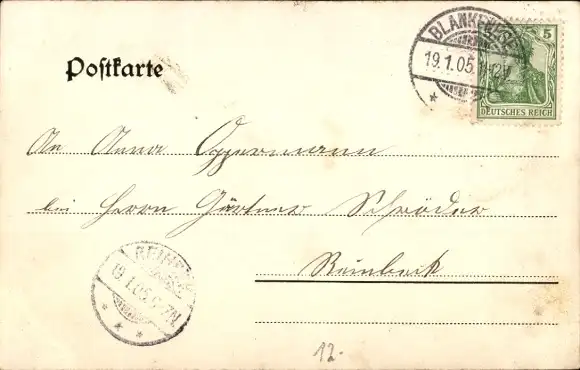 Postkarte
BLANKENESE
19.1.05.
5
DEUTSCHES REICH
An Anna Oppermann
bei Herrn Gärtner Schröder
Reinbeck
REINBEK
19.1.05.
12.